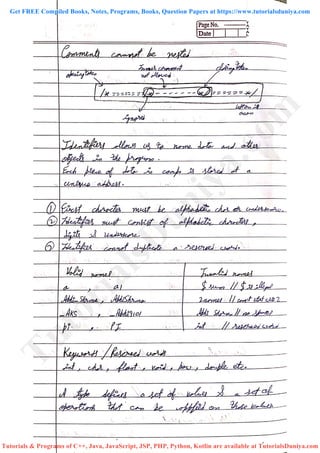 Get FREE Compiled Books, Notes, Programs, Books, Question Papers at https://www.tutorialsduniya.com
Page No.
Date
Comments cannot be nested
Inner comment
not allowed
opening token
closing token
/* ======= /* - - - - - - */ ======= */
ignored
Identifiers allows us to name data and other
objects in the program.
Each piece of data in comp is stored at a
unique address.
① First character must be alphabetic char or underscore.
② Identifiers must consist of alphabetic characters,
digits & underscore.
③ Identifier cannot duplicate a reserved word.
Valid names Invalid names
a , a1 $ sum // $ is illegal
2names // can't start with 2
_AKS // no spaces
pI , PI int // reserved word
Keywords / Reserved words
int , char , float , void , pow , double etc.
A type defines a set of values & a set of
operations that can be applied on those values
TutorialsDuniya.com
Tutorials & Programs of C++, Java, JavaScript, JSP, PHP, Python, Kotlin are available at TutorialsDuniya.com